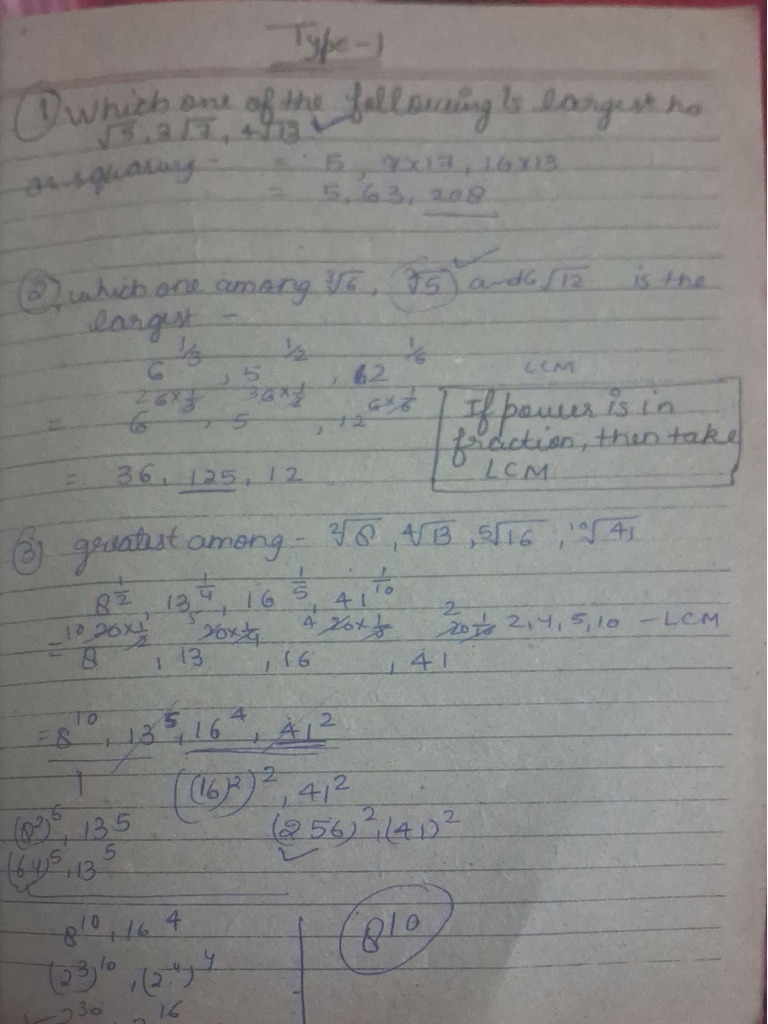 Type-1
① Which one of the following is largest no
√5, 3√7, 4√13 ✓
on squaring - = 5, 9×17, 16×13
= 5, 63, 208
② which one among ³√6, √5 ✓ and 6√12 is the
largest -
6^1/3, 5^1/2, 62^1/6 LCM
= 6^26×1/3, 5^36×1/2, 12^6×1/6
If power is in
fraction, then take
LCM
= 36, 125, 12
③ greatest among - ²√8, ⁴√13, ⁵√16, ¹⁰√41
8^1/2, 13^1/4, 16^1/5, 41^1/10
= 8^10 20×1/2, 13^5 20×1/4, 16^4 20×1/5, 41^2 20×1/10 2, 4, 5, 10 - LCM
= 8^10, 13^5, 16^4, 41^2
((16)²)², 41²
(8²)^5, 13^5 (256)², (41)²
(64)^5, 13^5 ✓
8^10, 16^4 8^10
(2³)^10, (2^4)^4
2^30 2^16